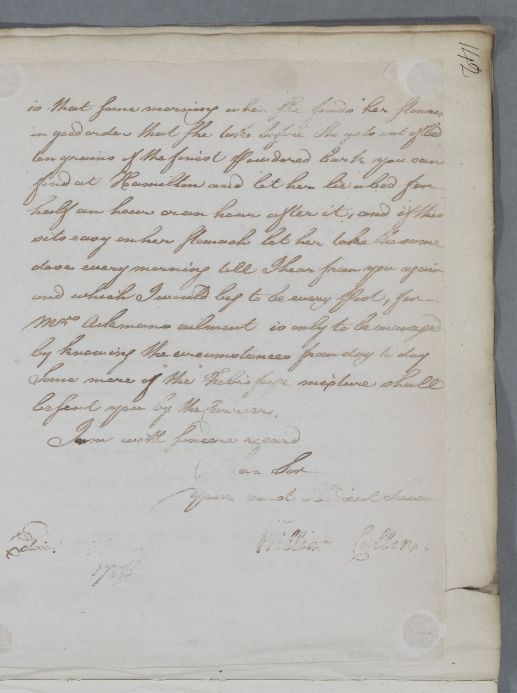 142
is that some morning when she finds her stomach
in good order that she take before she gets out of bed
ten grains of the finest Powdered bark you can
find at Hamilton and let her lie a bed for
half an hour or an hour after it, and if this
sits easy on her stomach let her take the same
dose every morning till I hear from you again
and which I would beg to be every Post, for
Mrs Aikmans ailment is only to be managed
by knowing the circumstances from day to day
Some more of the Febrifuge mixture shall
be sent you by the Carrier.
I am with sincere regard
Dear Sir
your most Obedient Servan
William Cullen.
Edin.